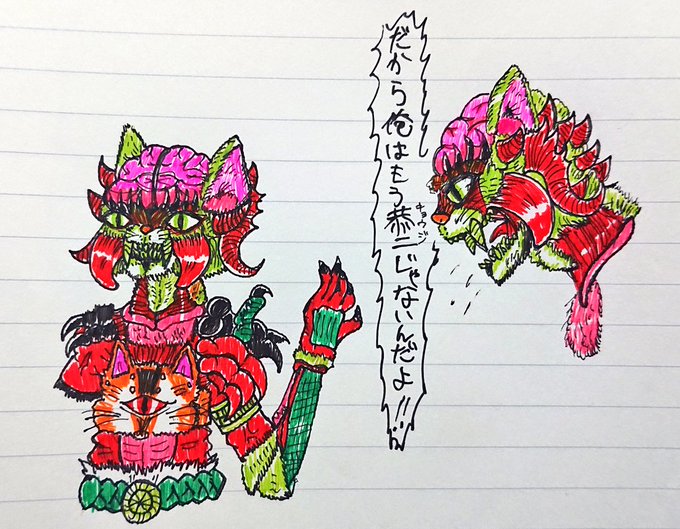 だから俺はもう恭二じゃないんだよ!!
キョウジ